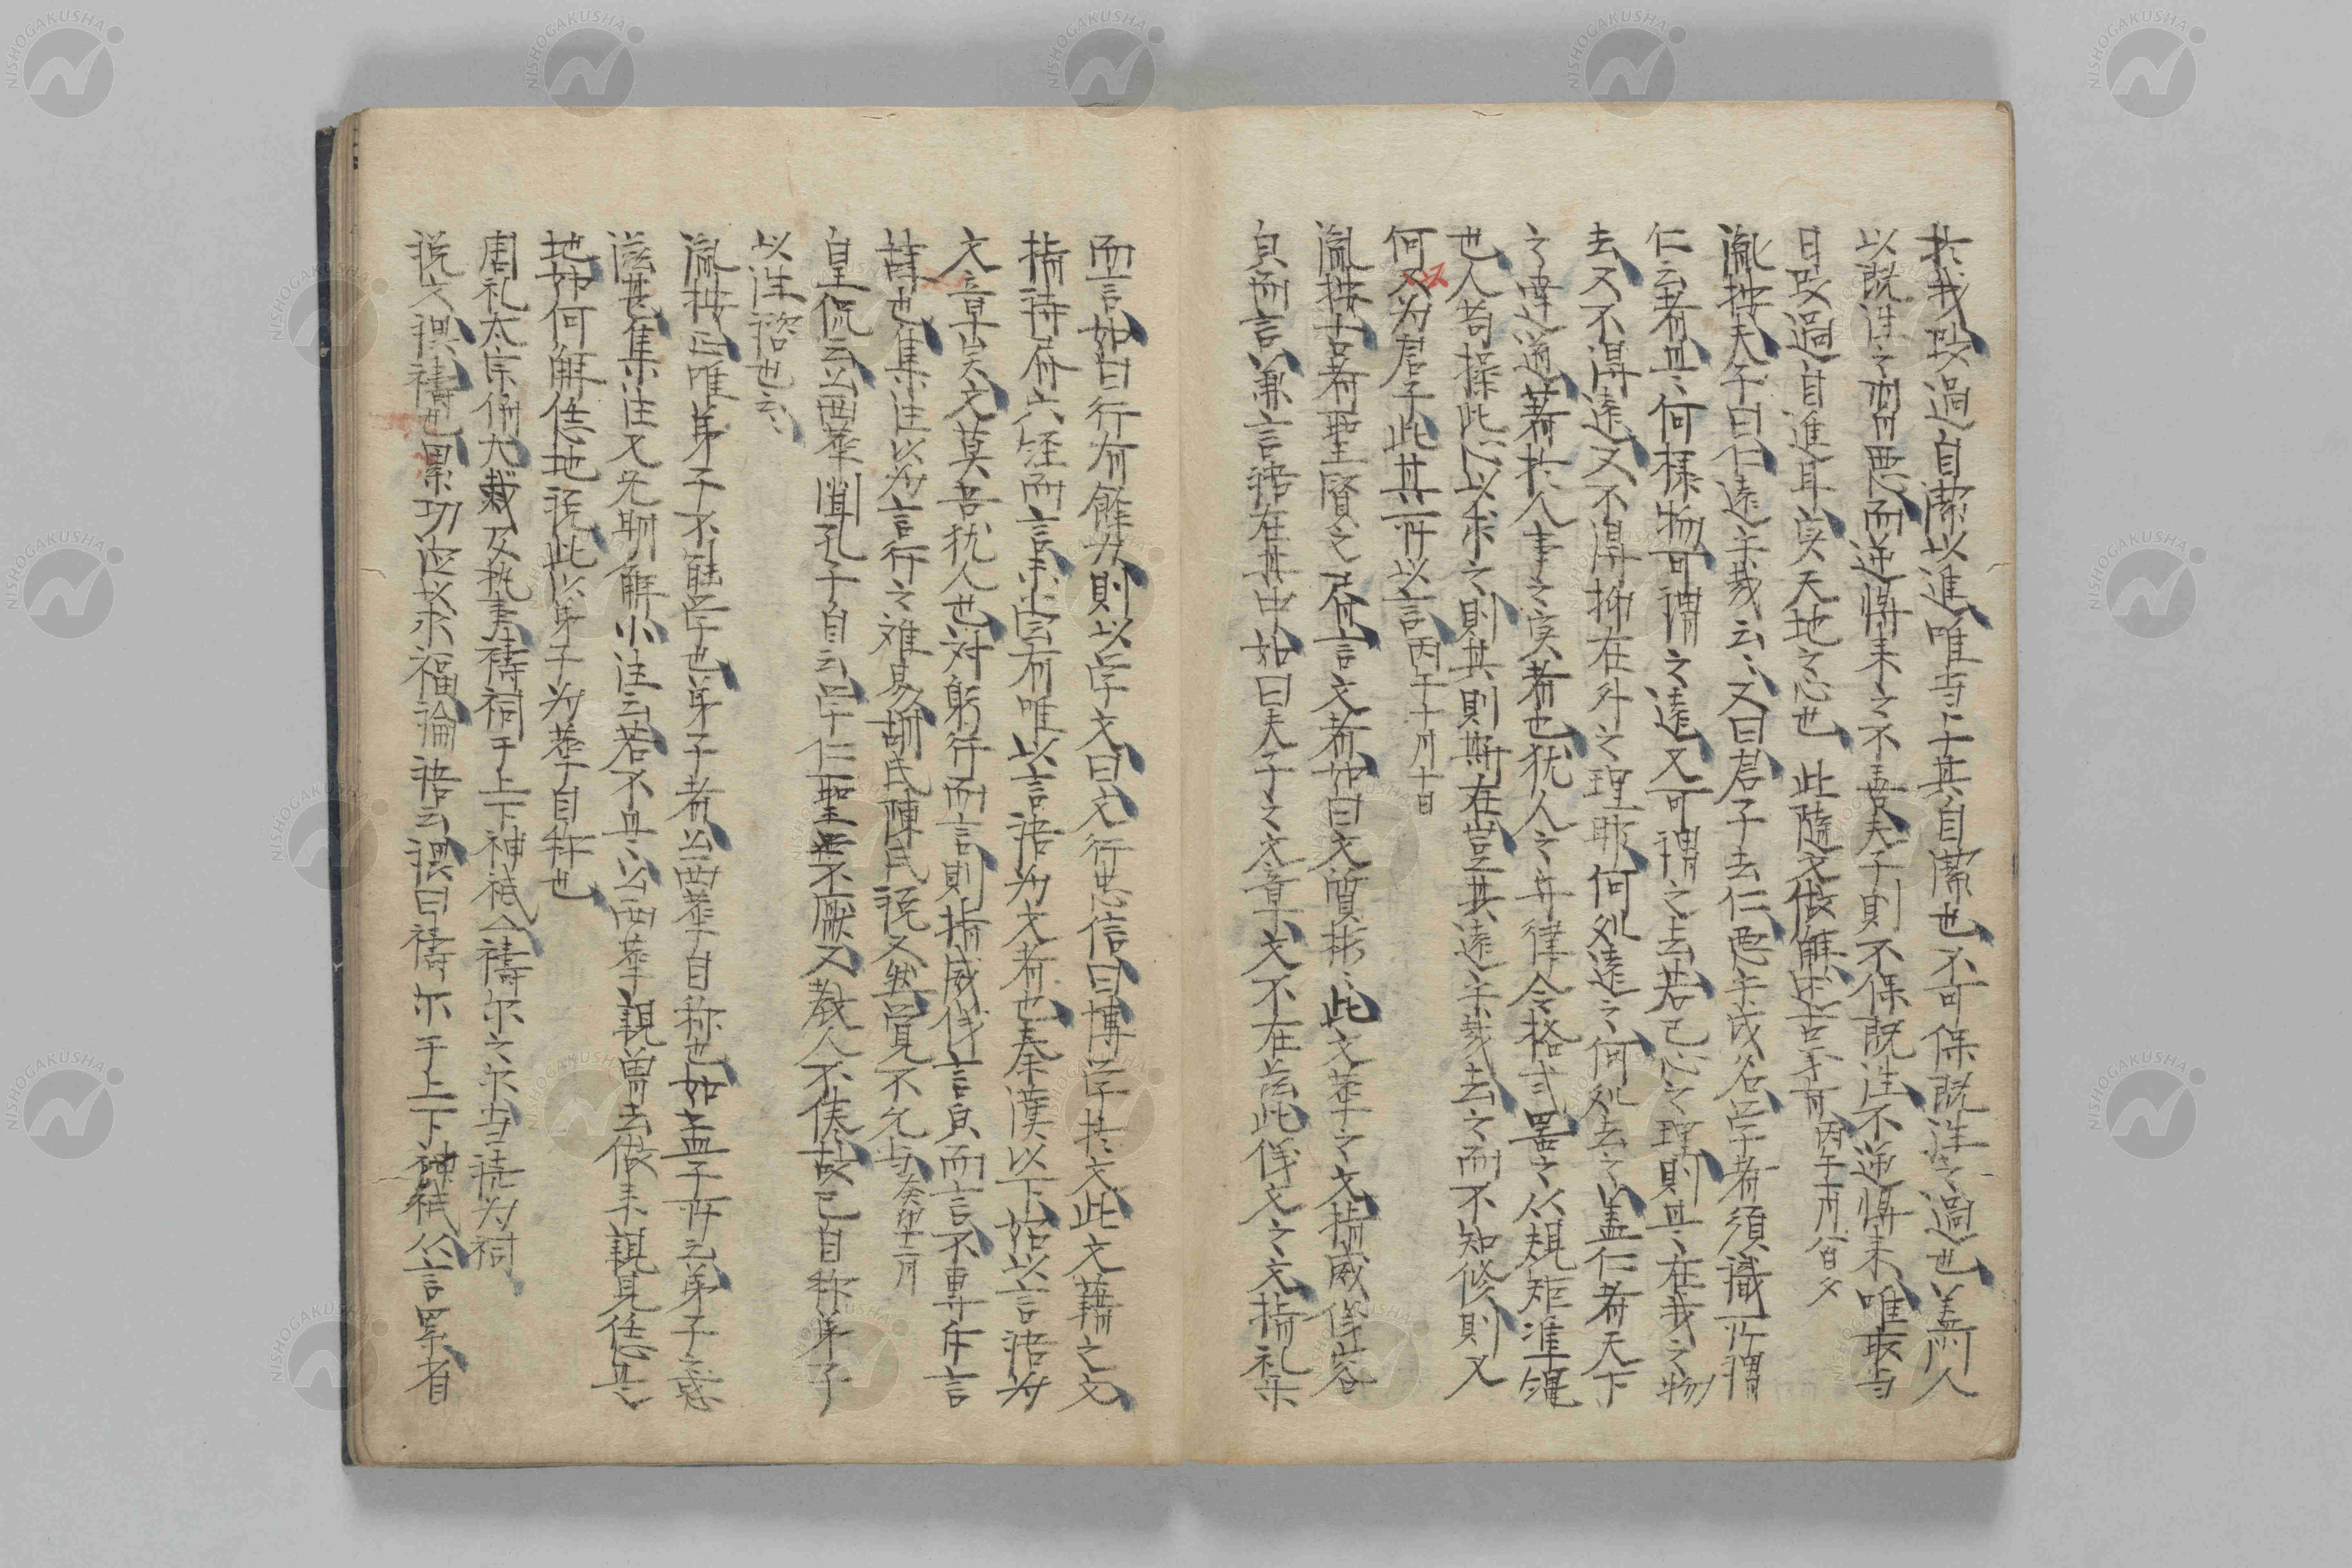 於我改過自潔以進唯与其自潔也不可保既往之過也蓋門人
以既往之所目悪而逆将来之不善夫子則不保既往不逆将来唯取与
日改過自進耳実天地之心也 此随文做解述古矛有丙午十月八日夕
胤按夫子曰仁遠乎哉云〻又曰君子去仁悪乎成名学者須識所謂
仁云者具〻何様物可謂之遠又可謂之去若已心之理則具〻在我之物
去又不得遠又不得抑在外之理耶何処遠之何処去之蓋仁者天下
之達道著於人事之実者也猶人之有律令格式器之从規矩準縄
也人苟操此心以求之則其則斯在豈其遠乎哉去之而不知修則又
何以为君子此其所以言丙午十月十日
胤按古者聖賢之所言文者如曰文質彬〻此文華之文指威儀容
貞而言兼言語在其中如曰夫子之文章文不在茲此儀文之文指礼楽
而言如曰行有餘力則以学文曰文行忠信曰博学於文此文藉之文
指詩屑六経而言未嘗有唯以言語为文者也秦漢以下始以言語为
文章矣文莫吾犹人也対躬行而言則指威儀言貞而言不専斥言
語也集注以为言行之难易胡氏陳氏説又然覚不允当癸卯十二月
皇侃云公西華聞孔子自云学仁聖無不厭又教人不倦故已自称弟子
以往咨也云〻
胤按正唯弟子不能学也弟子者公西華自称也如孟子所云弟子之惑
滋甚集注又无明解小注云若不具〻公西華親曽去做来親見恁具〻
地如何解恁地説此以弟子为華自称也
周礼太宗伯大裁及執事禱祠于上下神祇今禱尓之尓当読为祠
説文禩禱也累功徳以求福論語云禩曰禱尓于上下神祇从言累省